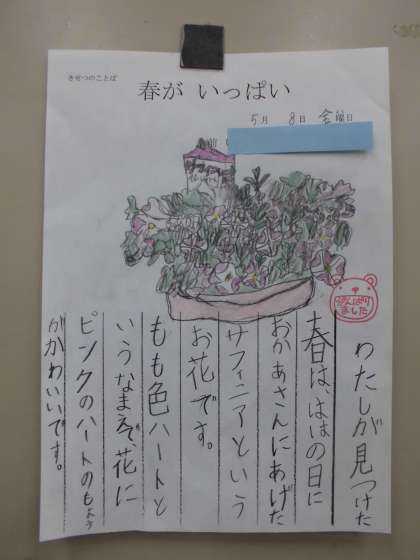 きせつのことば
春が いっぱい
5月 8日 金曜日
がんばり
ました
わたしが見つけた
春は、ははの日に
おかあさんにあげた
サフィニアという
お花です。
もも色ハートと
いうなまえで、花に
ピンクのハートのもよう
がかわいいです。